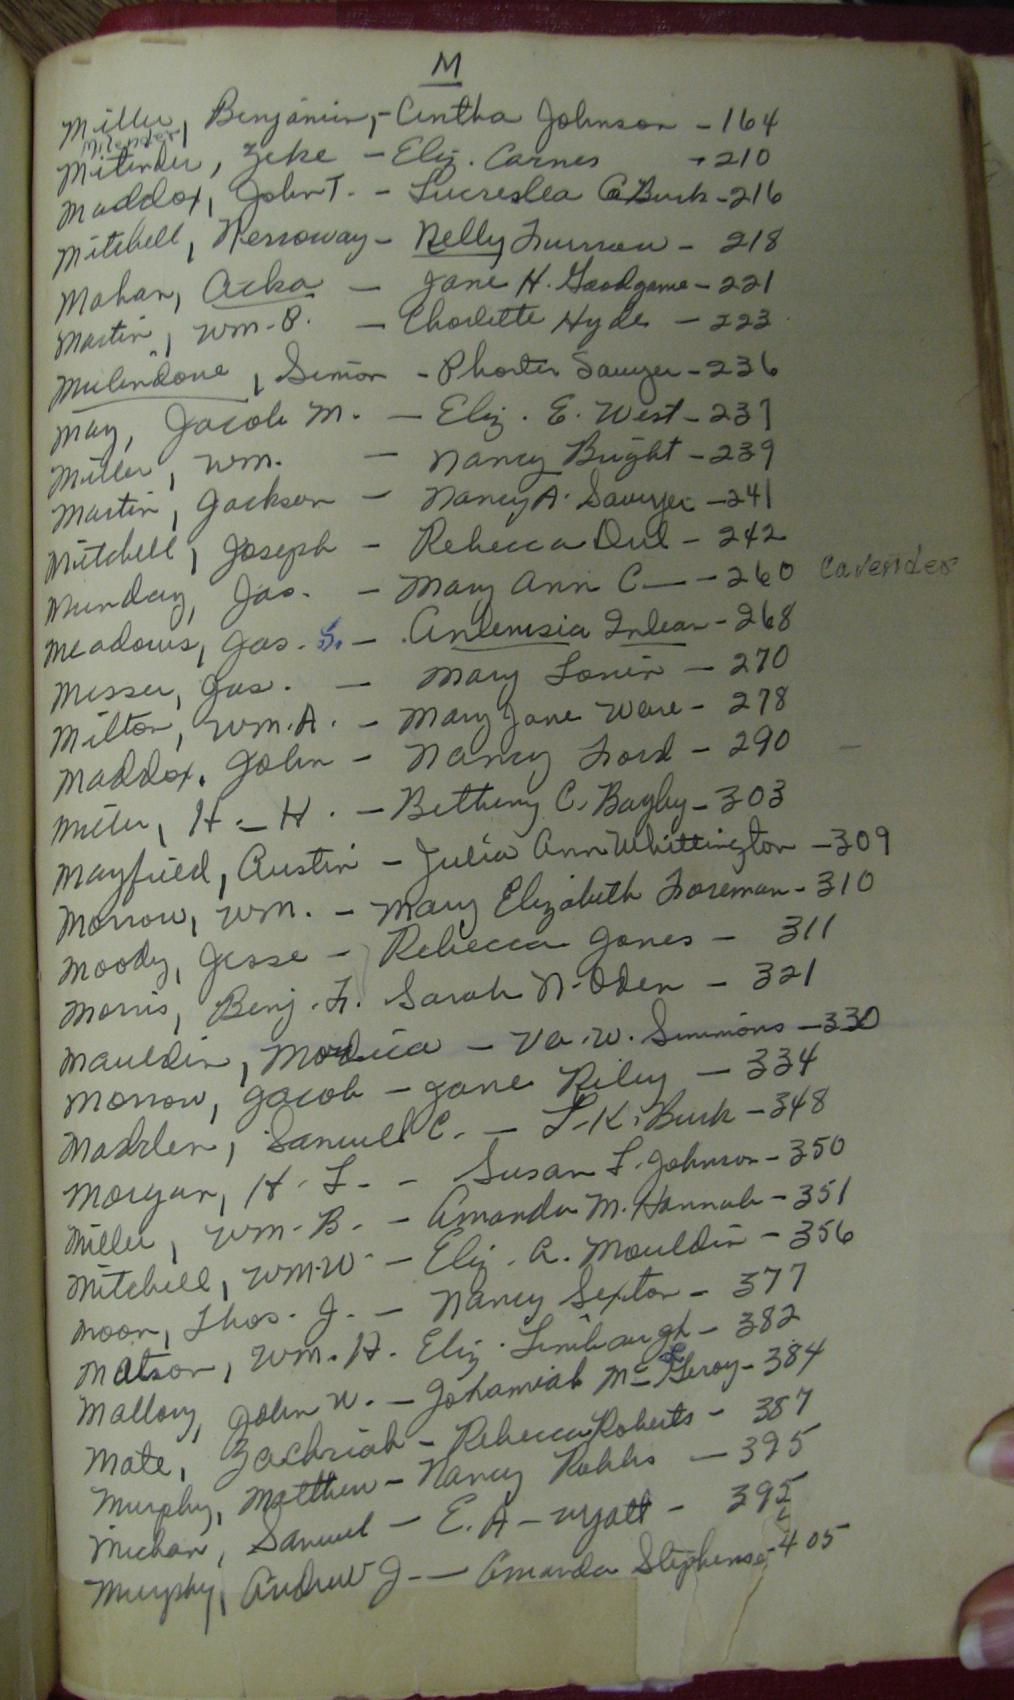 M
Miller, Benjamin, - Cintha Johnson - 164
Mitinder, Zeke - Eliz. Carnes - 210
Maddox, John T. - C Burk - 216
Mitchell, - Nelly Furrow - 218
Mahan, Acka - Jane H. Goodgame - 221
Martin, Wm. B. - Charlotte Hyde - 223
Simon - Sawyer - 236
May, Jacob M. - Eliz. E. West - 237
Miller, Wm. - Nancy Bright - 239
Martin, Jackson - Nancy A. Sawyer - 241
Mitchell, Joseph - Rebecca - 242
Munday, Jas. - Mary Ann C— - 260 Cavender
Meadows, Jas. S. - Artemisia - 268
Messer, Jas. - Mary - 270
Milton, Wm. A. - Mary Jane Ware - 278
Maddox, John - Nancy Ford - 290
Miller, H - H. - Betheny C. Bagby - 303
Mayfield, Austin - Julia Ann Whittington - 309
Morrow, Wm. - Mary Elizabeth Foreman - 310
Moody, Jesse - Rebecca Jones - 311
Morris, Benj. F. Sarah N. Oden - 321
Mauldin, - Va. W. Simmons - 330
Morrow, Jacob - Jane Riley - 334
Samuel C. - L. K. Burk - 348
Morgan, H. L. - Susan F. Johnson - 350
Miller, Wm. B. - Amanda M. Hannah - 351
Mitchell, Wm. W - Eliz. A. Mouldin - 356
Moon, Thos. J. - Nancy Sexton - 377
Matson, Wm. H. Eliz. Limbaugh - 382
Mallory, John W. - - 384
Mate, Zachriah - Rebecca Roberts - 387
Murphy, Matthew - Nancy - 395
Samuel - E. A - Wyatt - 395
Murphy, Andrew J. - Amanda Stephens - 405